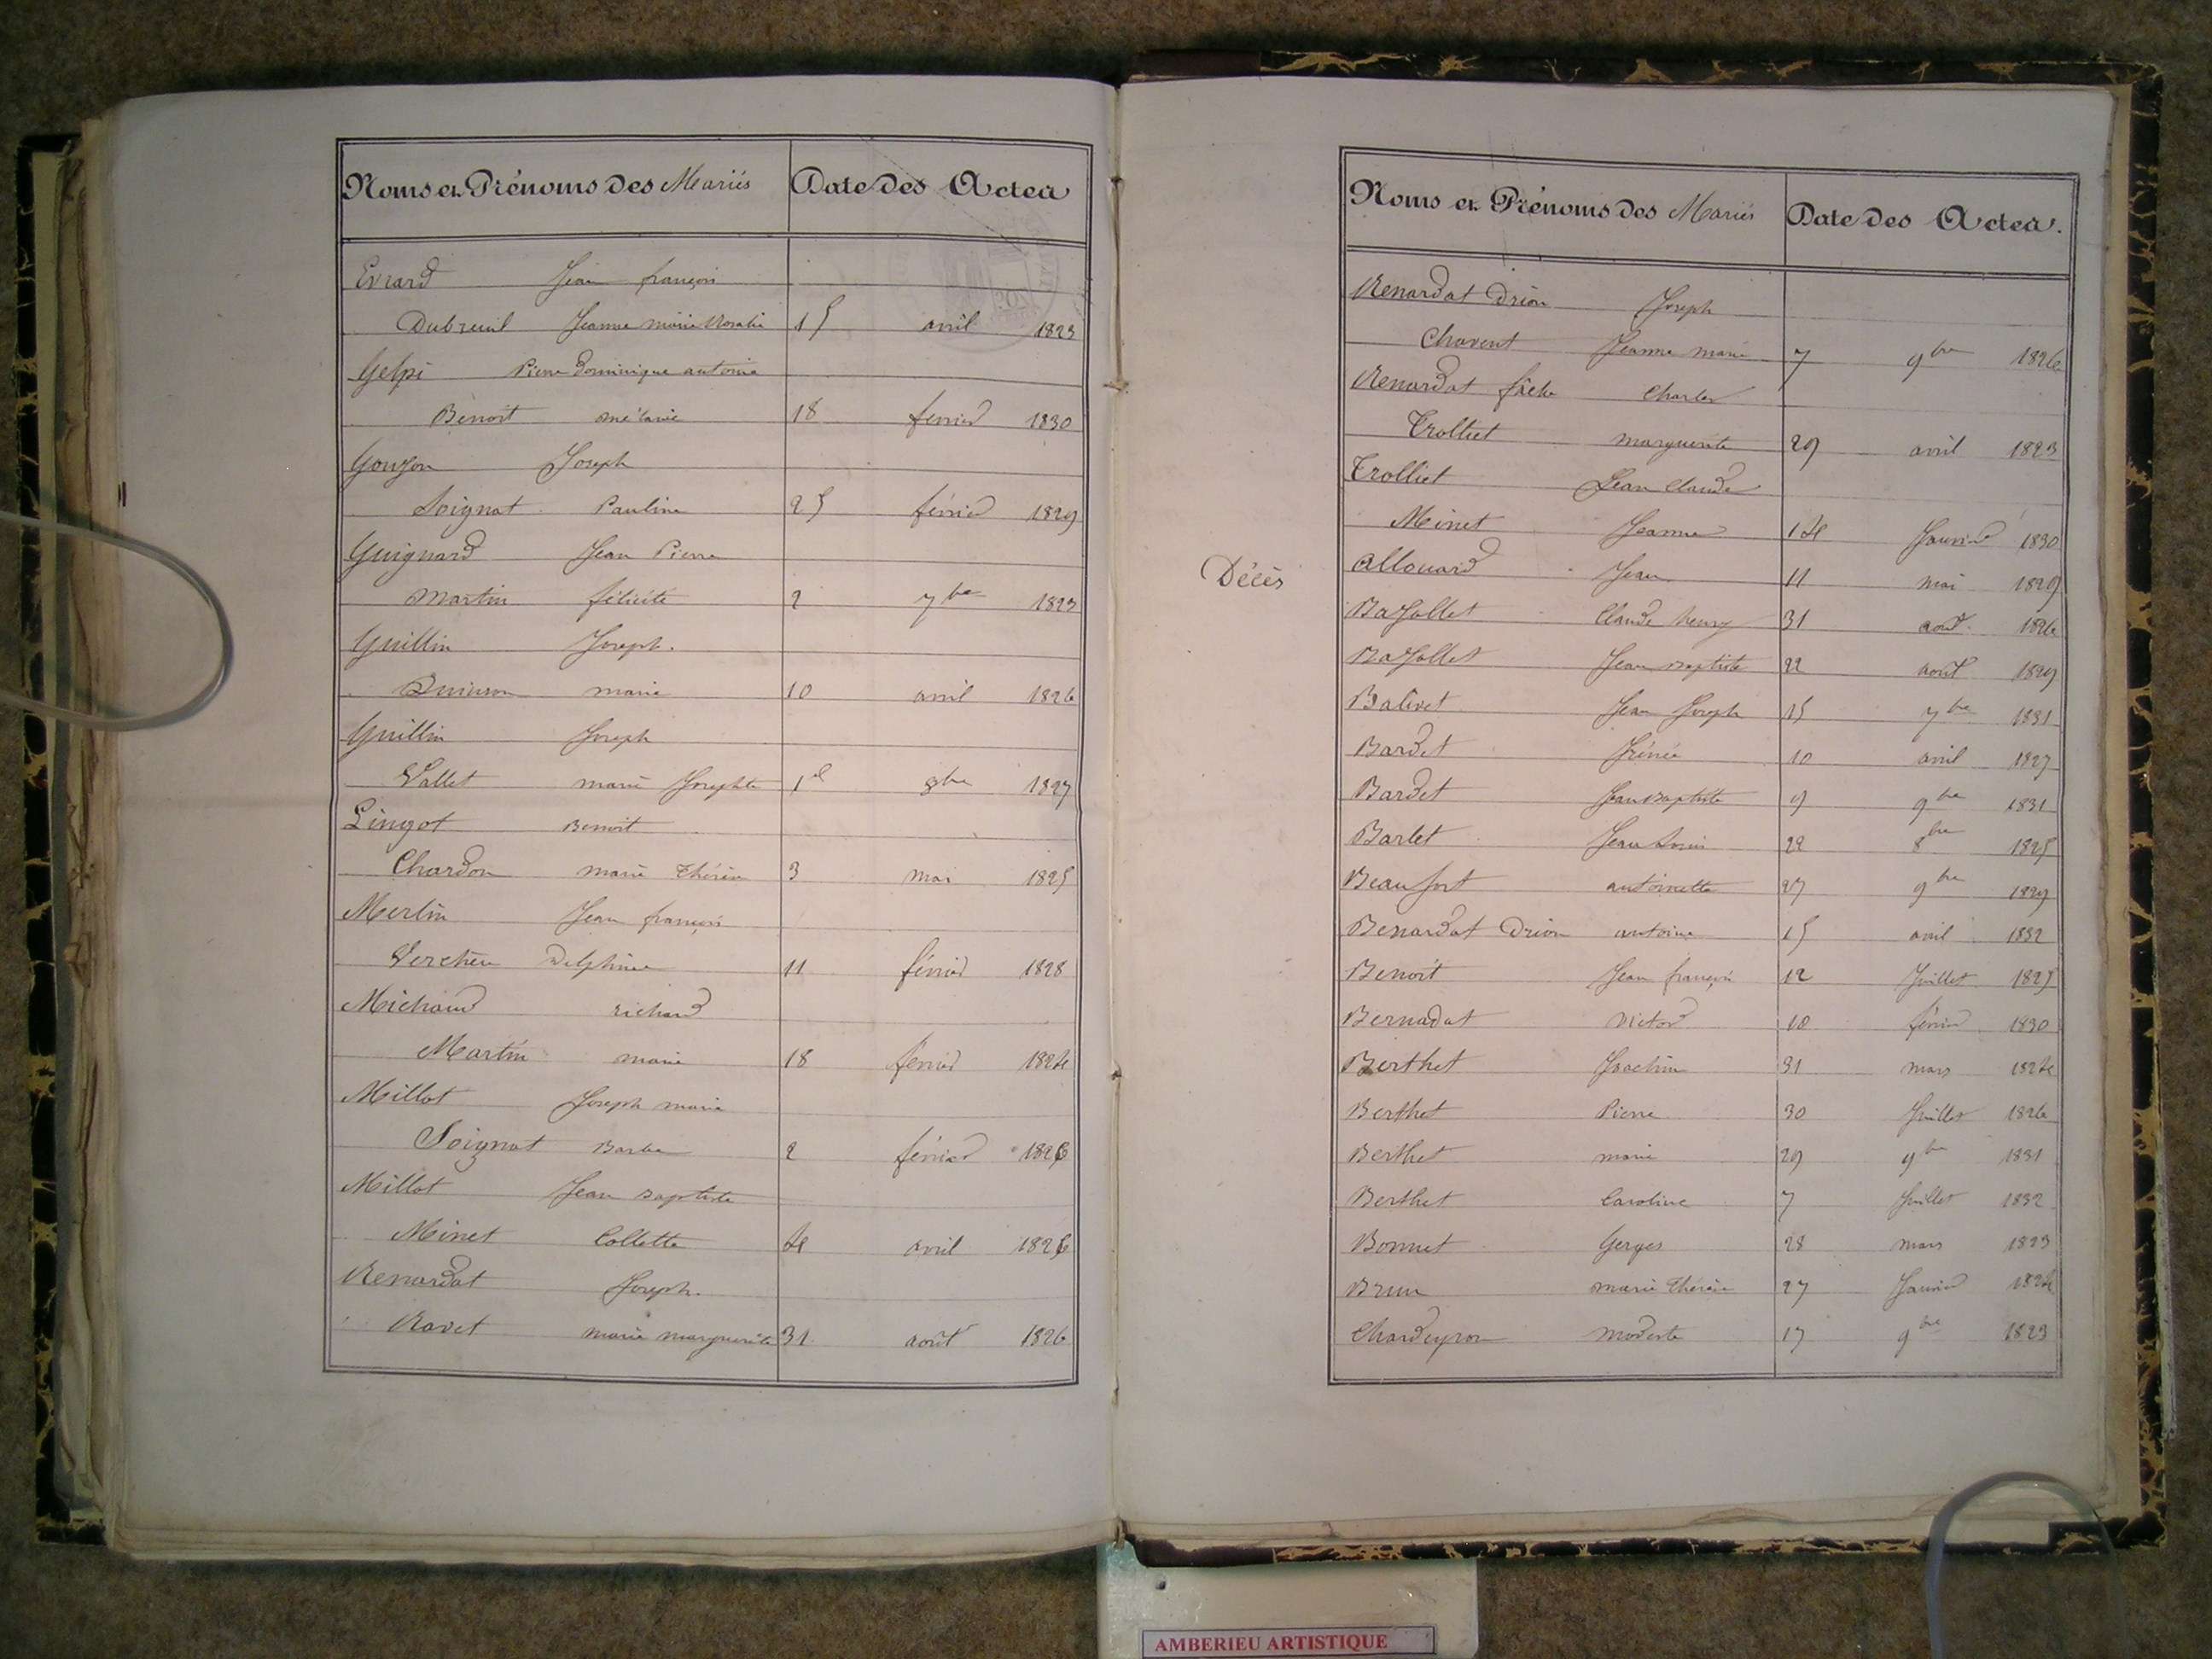 Noms et Prénoms des Mariés Date des Actes
Evrard Jean françois
Dubreuil Jeanne marie Rosalie 15 avril 1823
Gelpi Pierre dominique antoine
Benoît mélanie 18 février 1830
Goujon Joseph
Soignat Pauline 25 février 1829
Guignard Jean Pierre
Martin félicité 2 7bre 1823
Guillin Joseph.
Quinson marie 10 avril 1826
Guillin Joseph
Vallet marie Josephte 1er 8bre 1827
Lingot Benoit
Chardon marie Thérèse 3 mai 1825
Merlin Jean françois
Verchère Delphine 11 février 1828
Michaud richard
Martin marie 18 février 1824
Millot Joseph marie
Soignat Barbe 2 février 1826
Millot Jean Baptiste
Minet Collette 4 avril 1826
Renardat Joseph.
Ravet marie marguerite 31 août 1826
Noms et Prénoms des Mariés Date des Actes.
Renardat Drion Joseph
Chavent Jeanne marie 7 9bre 1826
Renardat fâche Charles
Trolliet marguerite 29 avril 1823
Trolliet Jean Claude
Minet Jeanne 14 Janvier 1830
Décès
Allouard Jean 11 mai 1829
Bajollet Claude henry 31 août 1826
Bajollet Jean Baptiste 22 août 1829
Balivet Jean Joseph 15 7bre 1831
Bardet Irénée 10 avril 1827
Bardet Jean Baptiste 9 9bre 1831
Barlet Jean Louis 22 8bre 1825
Beaufort antoinette 27 9bre 1829
Benardat Drion antoine 15 avril 1832
Benoit Jean françois 12 Juillet 1825
Bernadat Victor 10 février 1830
Berthet Joachim 31 mars 1824
Berthet Pierre 30 Juillet 1826
Berthet marie 29 9bre 1831
Berthet Caroline 7 Juillet 1832
Bonnet Gerges 28 mars 1823
Brun marie Thérèse 27 Janvier 1824
Chardeyron modeste 17 9bre 1823
AMBERIEU ARTISTIQUE